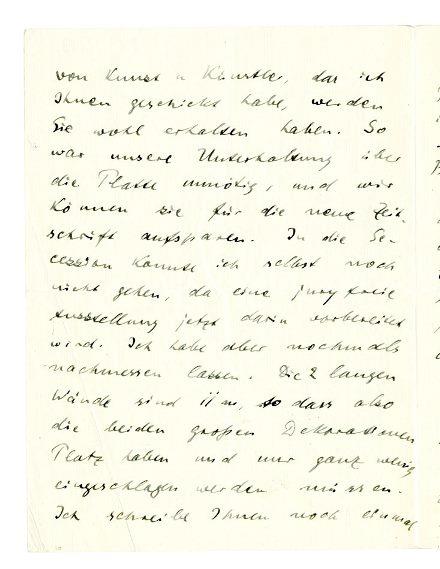 von Kunst u Künstler, das ich
Ihnen geschickt habe, werden
Sie wohl erhalten haben. So
war unsere Unterhaltung über
die Platte unnötig, und wir
können sie für die neue Zeit-
schrift aufsparen. In die Se-
cession konnte ich selbst noch
nicht gehen, da eine juryfreie
Ausstellung jetzt darin vorbereitet
wird. Ich habe aber nochmals
nachmessen lassen. Die 2 langen
Wände sind 11 m, so dass also
die beiden großen Dekorationen
Platz haben und nur ganz wenig
eingeschlagen werden müssen.
Ich schreibe Ihnen noch einmal